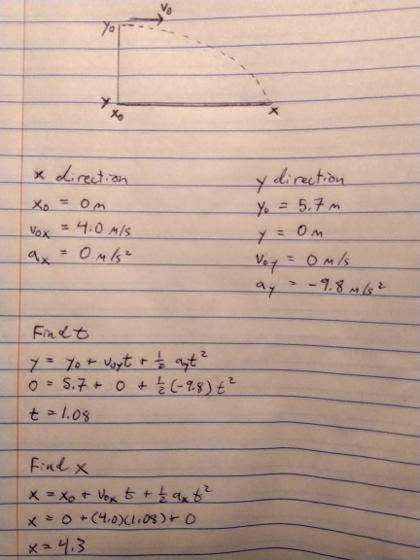 v₀
y₀
y
x₀ x
x direction
x₀ = 0 m
v₀ₓ = 4.0 m/s
aₓ = 0 m/s²
y direction
y₀ = 5.7 m
y = 0 m
v₀y = 0 m/s
ay = -9.8 m/s²
Find t
y = y₀ + v₀yt + ½ ayt²
0 = 5.7 + 0 + ½(-9.8)t²
t = 1.08
Find x
x = x₀ + v₀ₓ t + ½ aₓ t²
x = 0 + (4.0)(1.08) + 0
x = 4.3